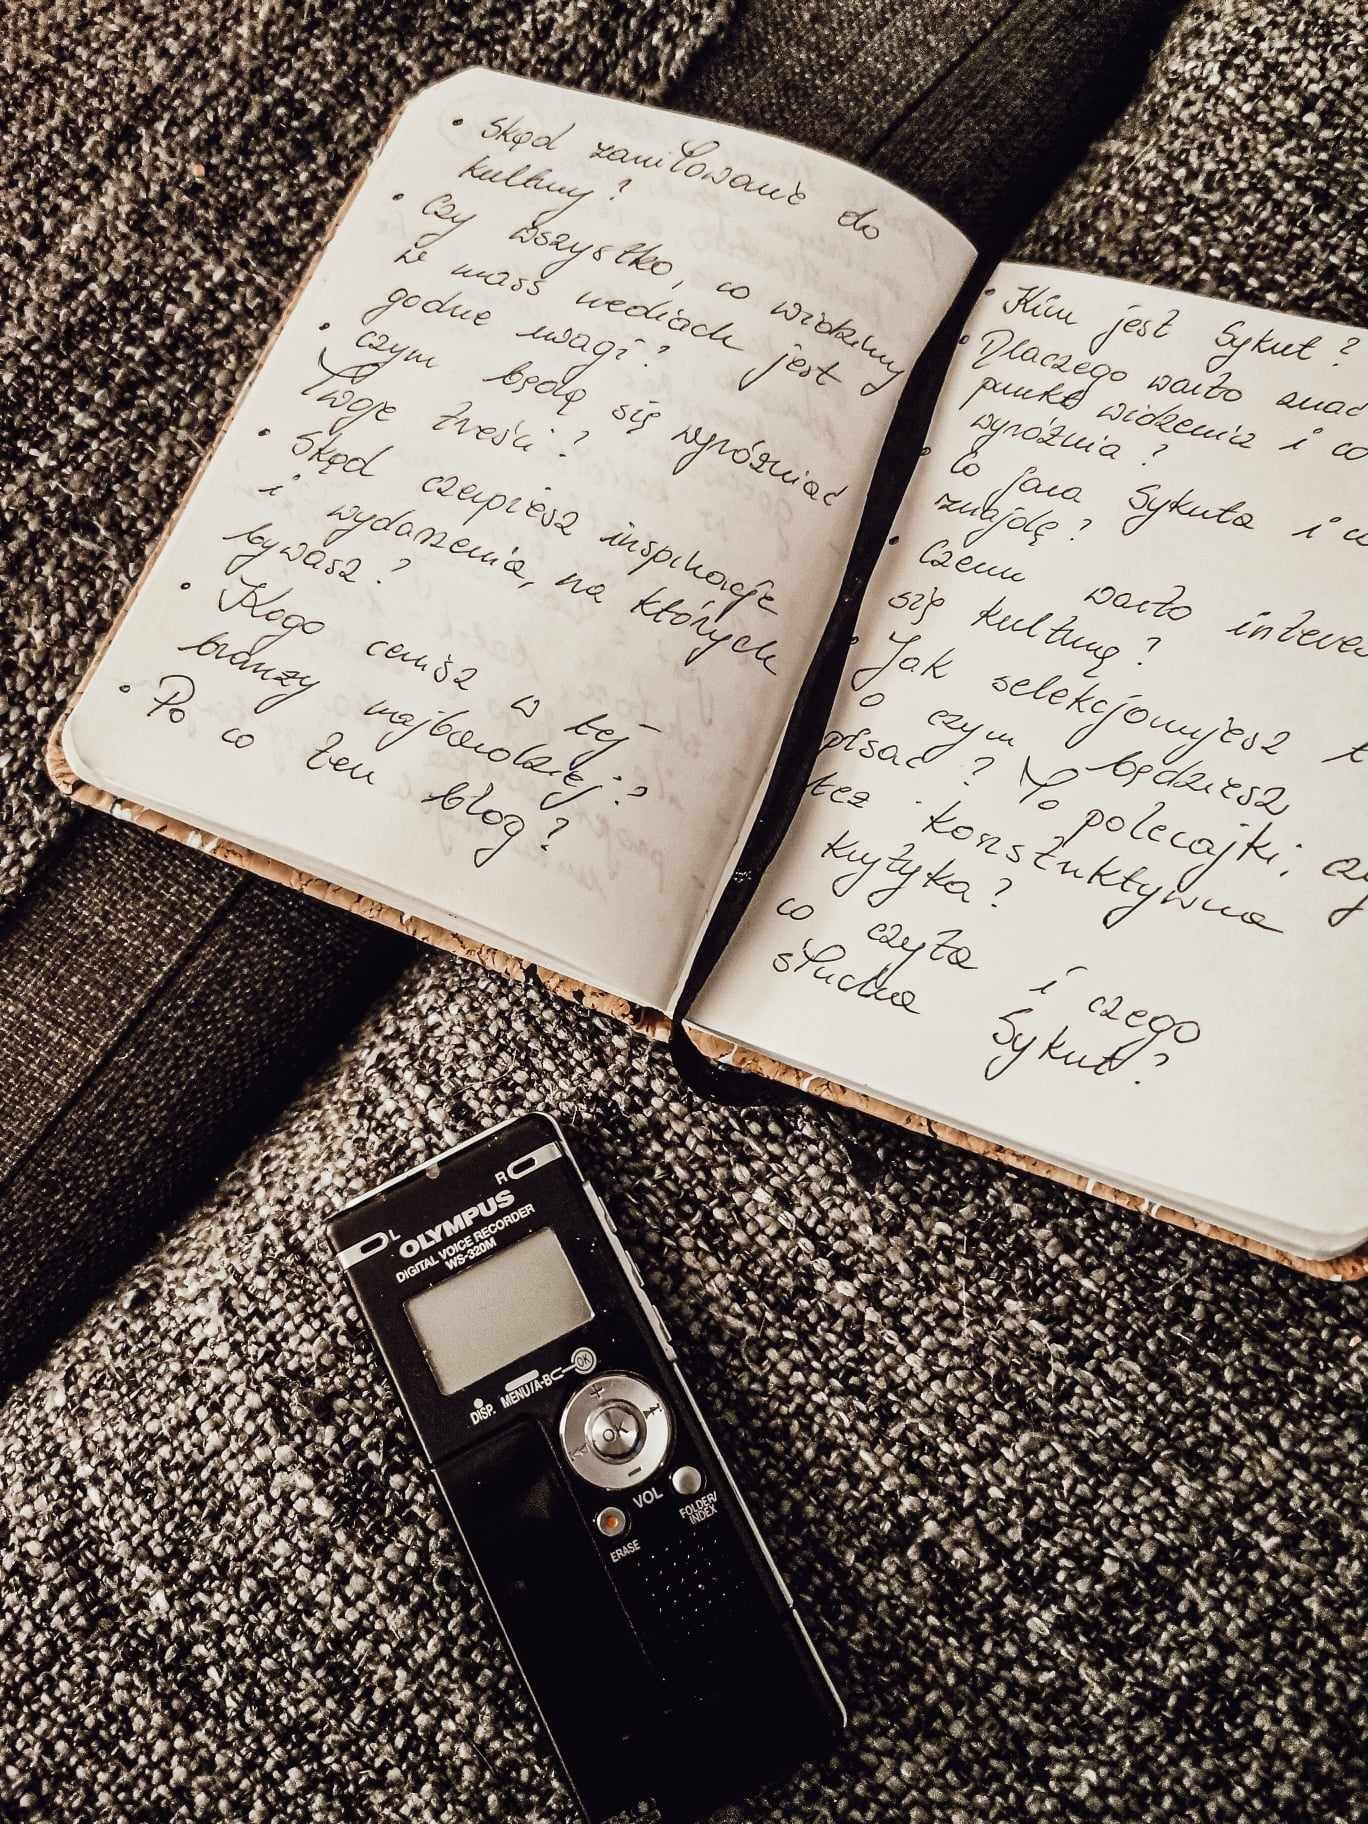 • Skąd zamiłowanie do
kultury?
• Czy wszystko, co widzimy
w mass mediach jest
godne uwagi?
• czym będą się wyróżniać
Twoje treści?
• Skąd czerpiesz inspikacje
i wydarzenia, na których
bywasz?
• Kogo cenisz w tej
branży majbardziej?
• Po co ten blog?
• Kim jest Sykut?
• Dlaczego warto znać
punkt widzenia i co
wyróżnia?
• Co Sykuta i co
znajdę?
• Czemu warto intere
się kulturą?
• Jak selekcjonujesz t
o czym będziesz
pisać? To polecajki, cz
też konstruktywna
krytyka?
co czyta i czego
słucha Sykut?
L R
OLYMPUS
DIGITAL VOICE RECORDER
WS-320M
DISP. MENU/A-B OK
+
OK
−
VOL
FOLDER/
INDEX
ERASE